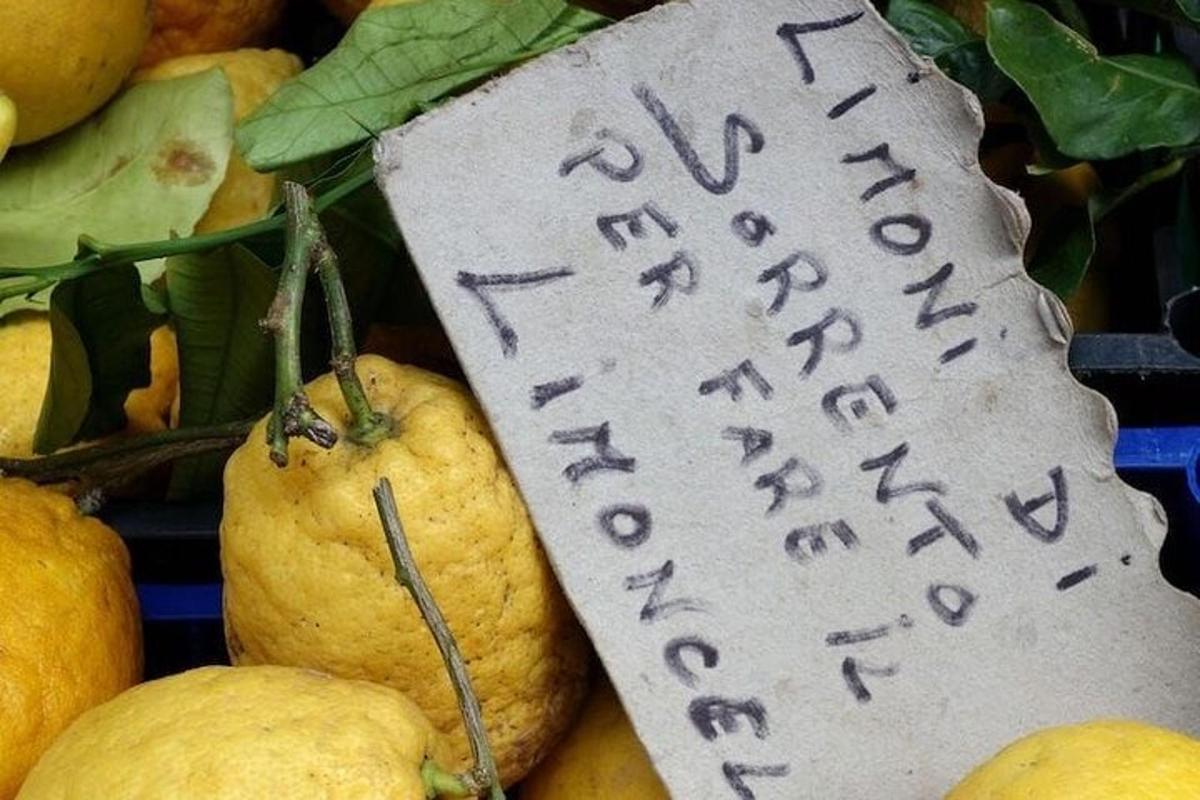 LiMONi Di
SoRRENTO
PER FARE iL
LIMONCEL